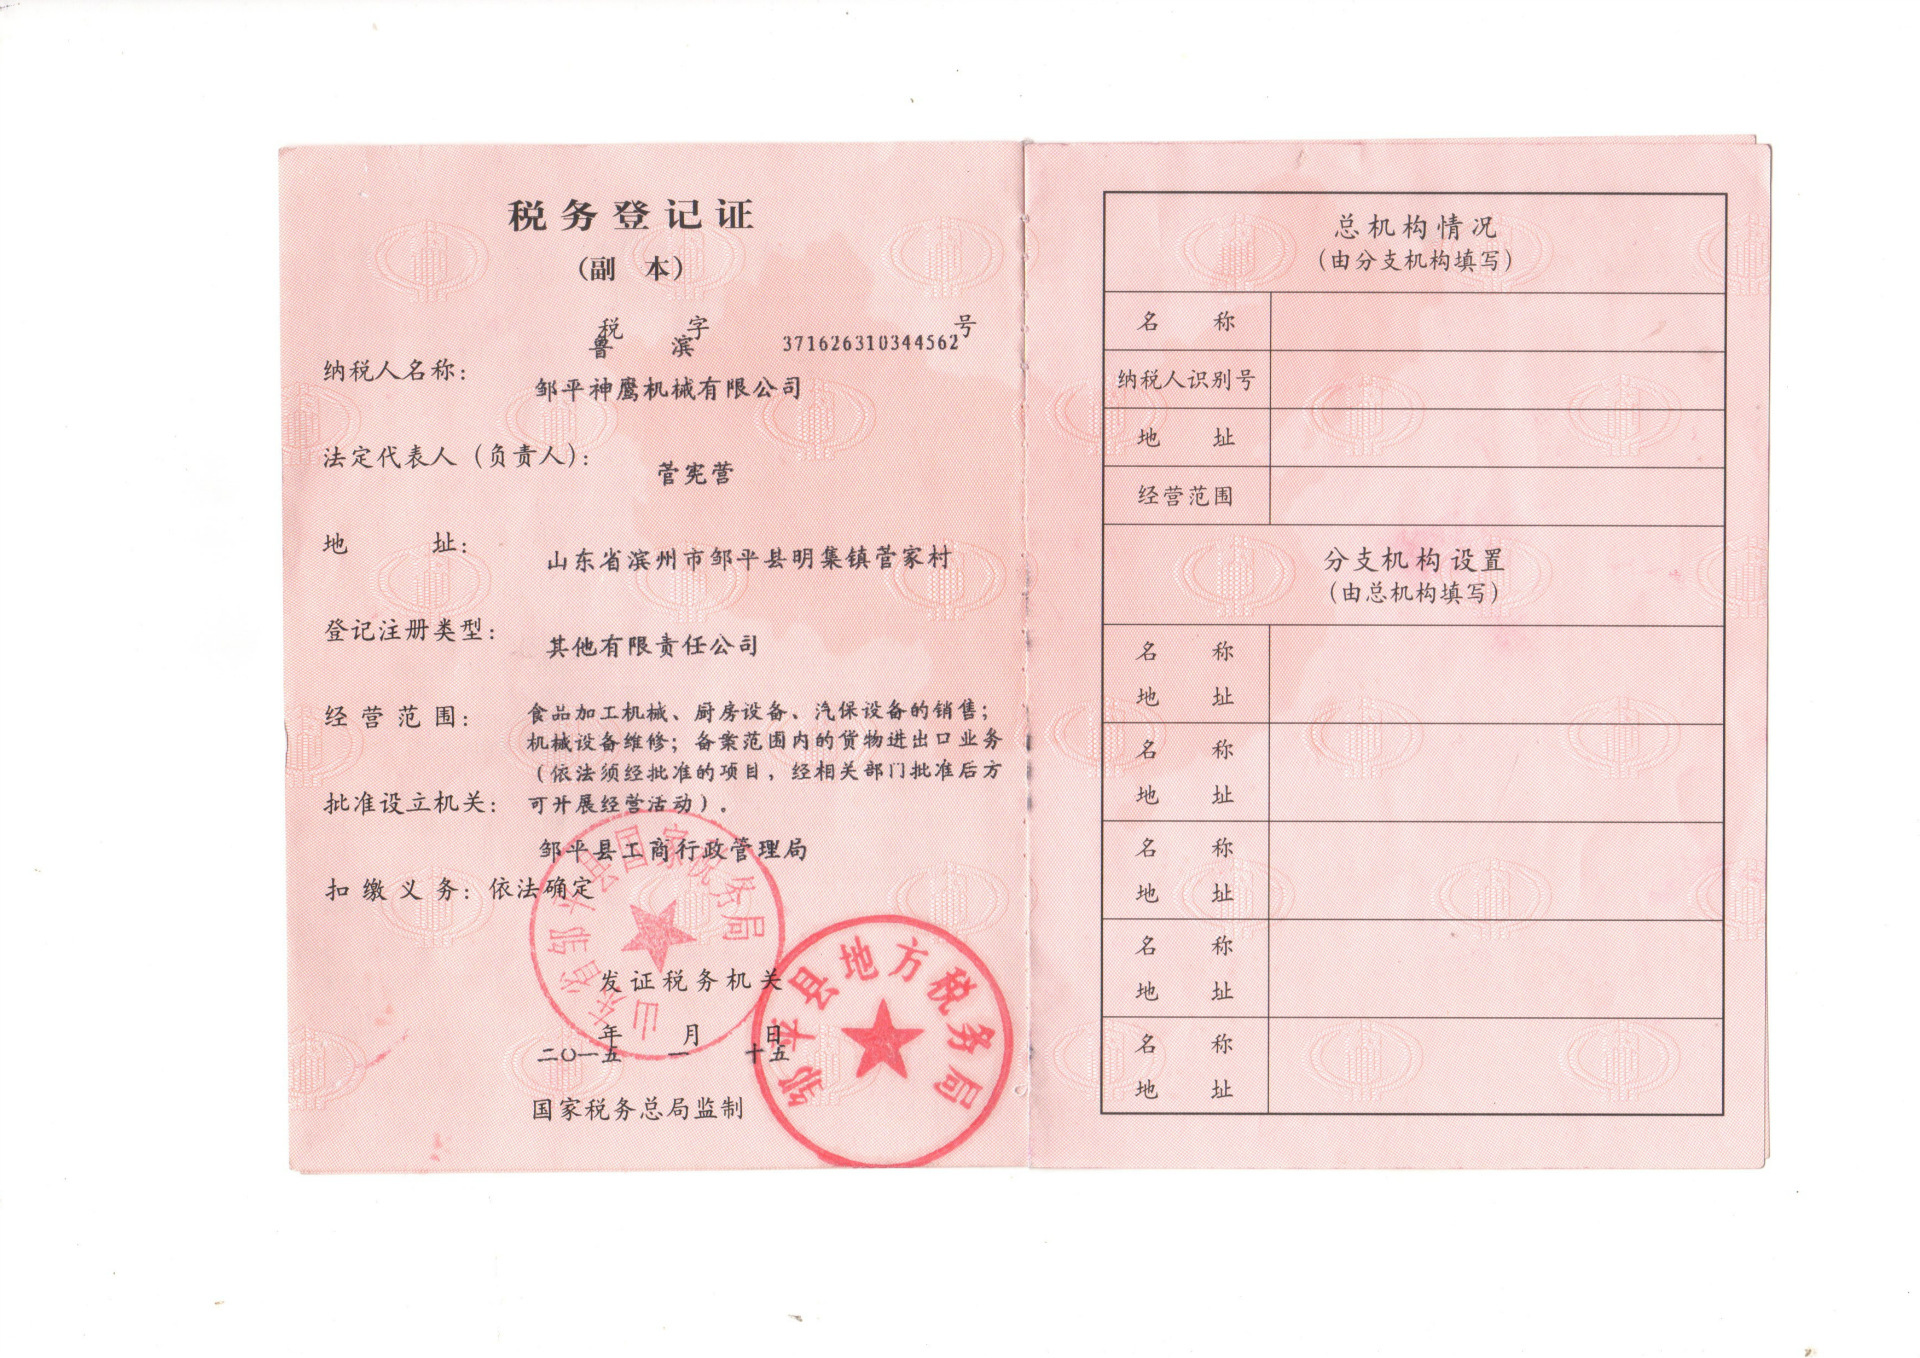 税务登记证
（副 本）
鲁 税 滨 字 371626310344562 号
纳税人名称：
邹平神鹰机械有限公司
法定代表人（负责人）：
菅宪营
地 址：
山东省滨州市邹平县明集镇菅家村
登记注册类型：
其他有限责任公司
经营范围：
食品加工机械、厨房设备、汽保设备的销售；
机械设备维修；备案范围内的货物进出口业务
（依法须经批准的项目，经相关部门批准后方
可开展经营活动）。
批准设立机关：
邹平县工商行政管理局
扣缴义务：依法确定
山东省邹平县国家税务局
邹平县地方税务局
发证税务机关
二〇一五年 一月 十五日
国家税务总局监制
总机构情况
（由分支机构填写）
名 称
纳税人识别号
地 址
经营范围
分支机构设置
（由总机构填写）
名 称
地 址
名 称
地 址
名 称
地 址
名 称
地 址
名 称
地 址